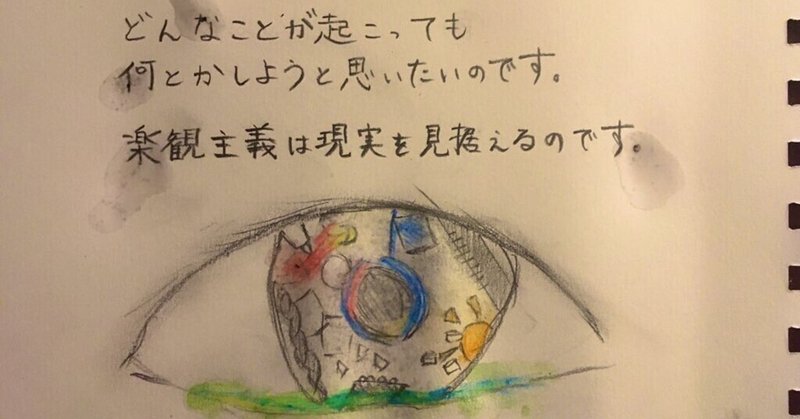 どんなことが起こっても
何とかしようと思いたいのです。
楽観主義は現実を見据えるのです。